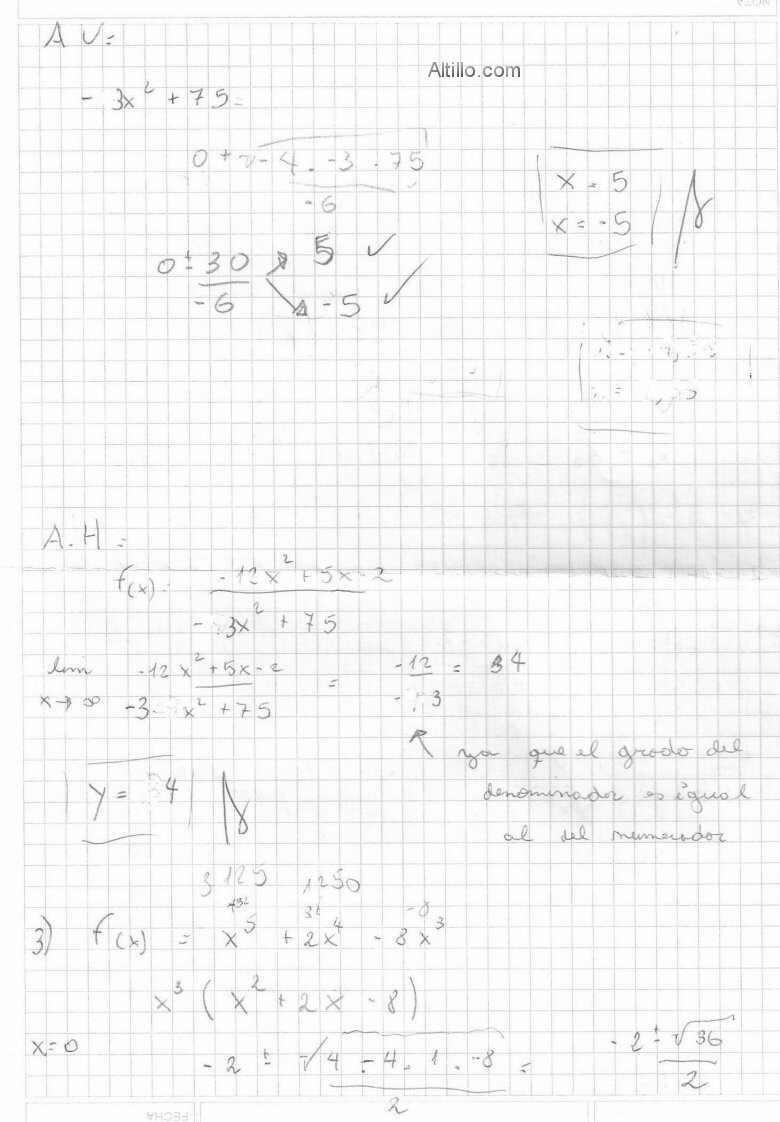 A V=
Altillo.com
- 3x² + 75 =
0 ± √-4 . -3 . 75
-6
x = 5
x = -5
0 ± 30
-6
5 ✓
-5 ✓
A.H =
f(x) = -12x² + 5x - 2
- 3x² + 75
lim -12x² + 5x - 2 = -12 = 4
x→∞ -3x² + 75 - 3
ya que el grado del
denominador es igual
al del numerador
y = 4
3125 1250
3) f(x) = x⁵ + 2x⁴ - 8x³
x³ ( x² + 2x - 8 )
x=0
-2 ± √4 - 4 . 1 . -8 = -2 ± √36
2 2
FECHA